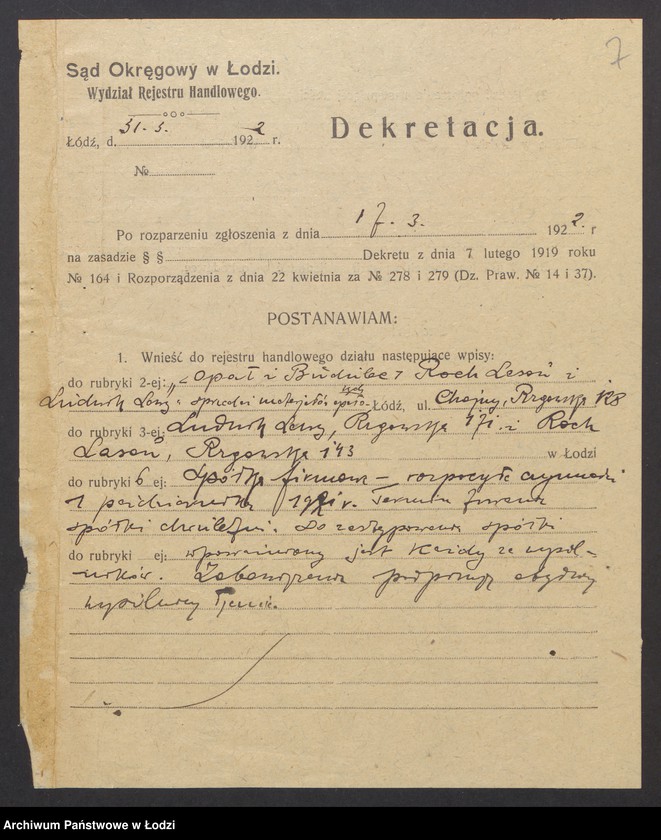 7
Sąd Okręgowy w Łodzi.
Wydział Rejestru Handlowego.
Łódź, d. 31. 3. 1922 r.
Dekretacja.
№
Po rozparzeniu zgłoszenia z dnia 17. 3. 1922. r
na zasadzie § § Dekretu z dnia 7 lutego 1919 roku
№ 164 i Rozporządzenia z dnia 22 kwietnia za № 278 i 279 (Dz. Praw. № 14 i 37).
POSTANAWIAM:
1. Wnieść do rejestru handlowego działu następujące wpisy:
do rubryki 2-ej: „Opał i Budulec" Roch Lasoń i
Ludwik sprzedaż materjałów Łódź, ul. Chojny, Rzgowska
do rubryki 3-ej: Ludwik Rzgowska 171. i Roch
Lasoń, Rzgowska 143 w Łodzi
do rubryki 6 ej: Spółka firmowa — rozpoczęła czynności
1 października 1921 r. Termin trwania
spółki Do zastępowania spółki
do rubryki ej: upoważniony jest każdy ze wspól-
ników. Zobowiązania podpisują obydwaj
wspólnicy łącznie.
Archiwum Państwowe w Łodzi